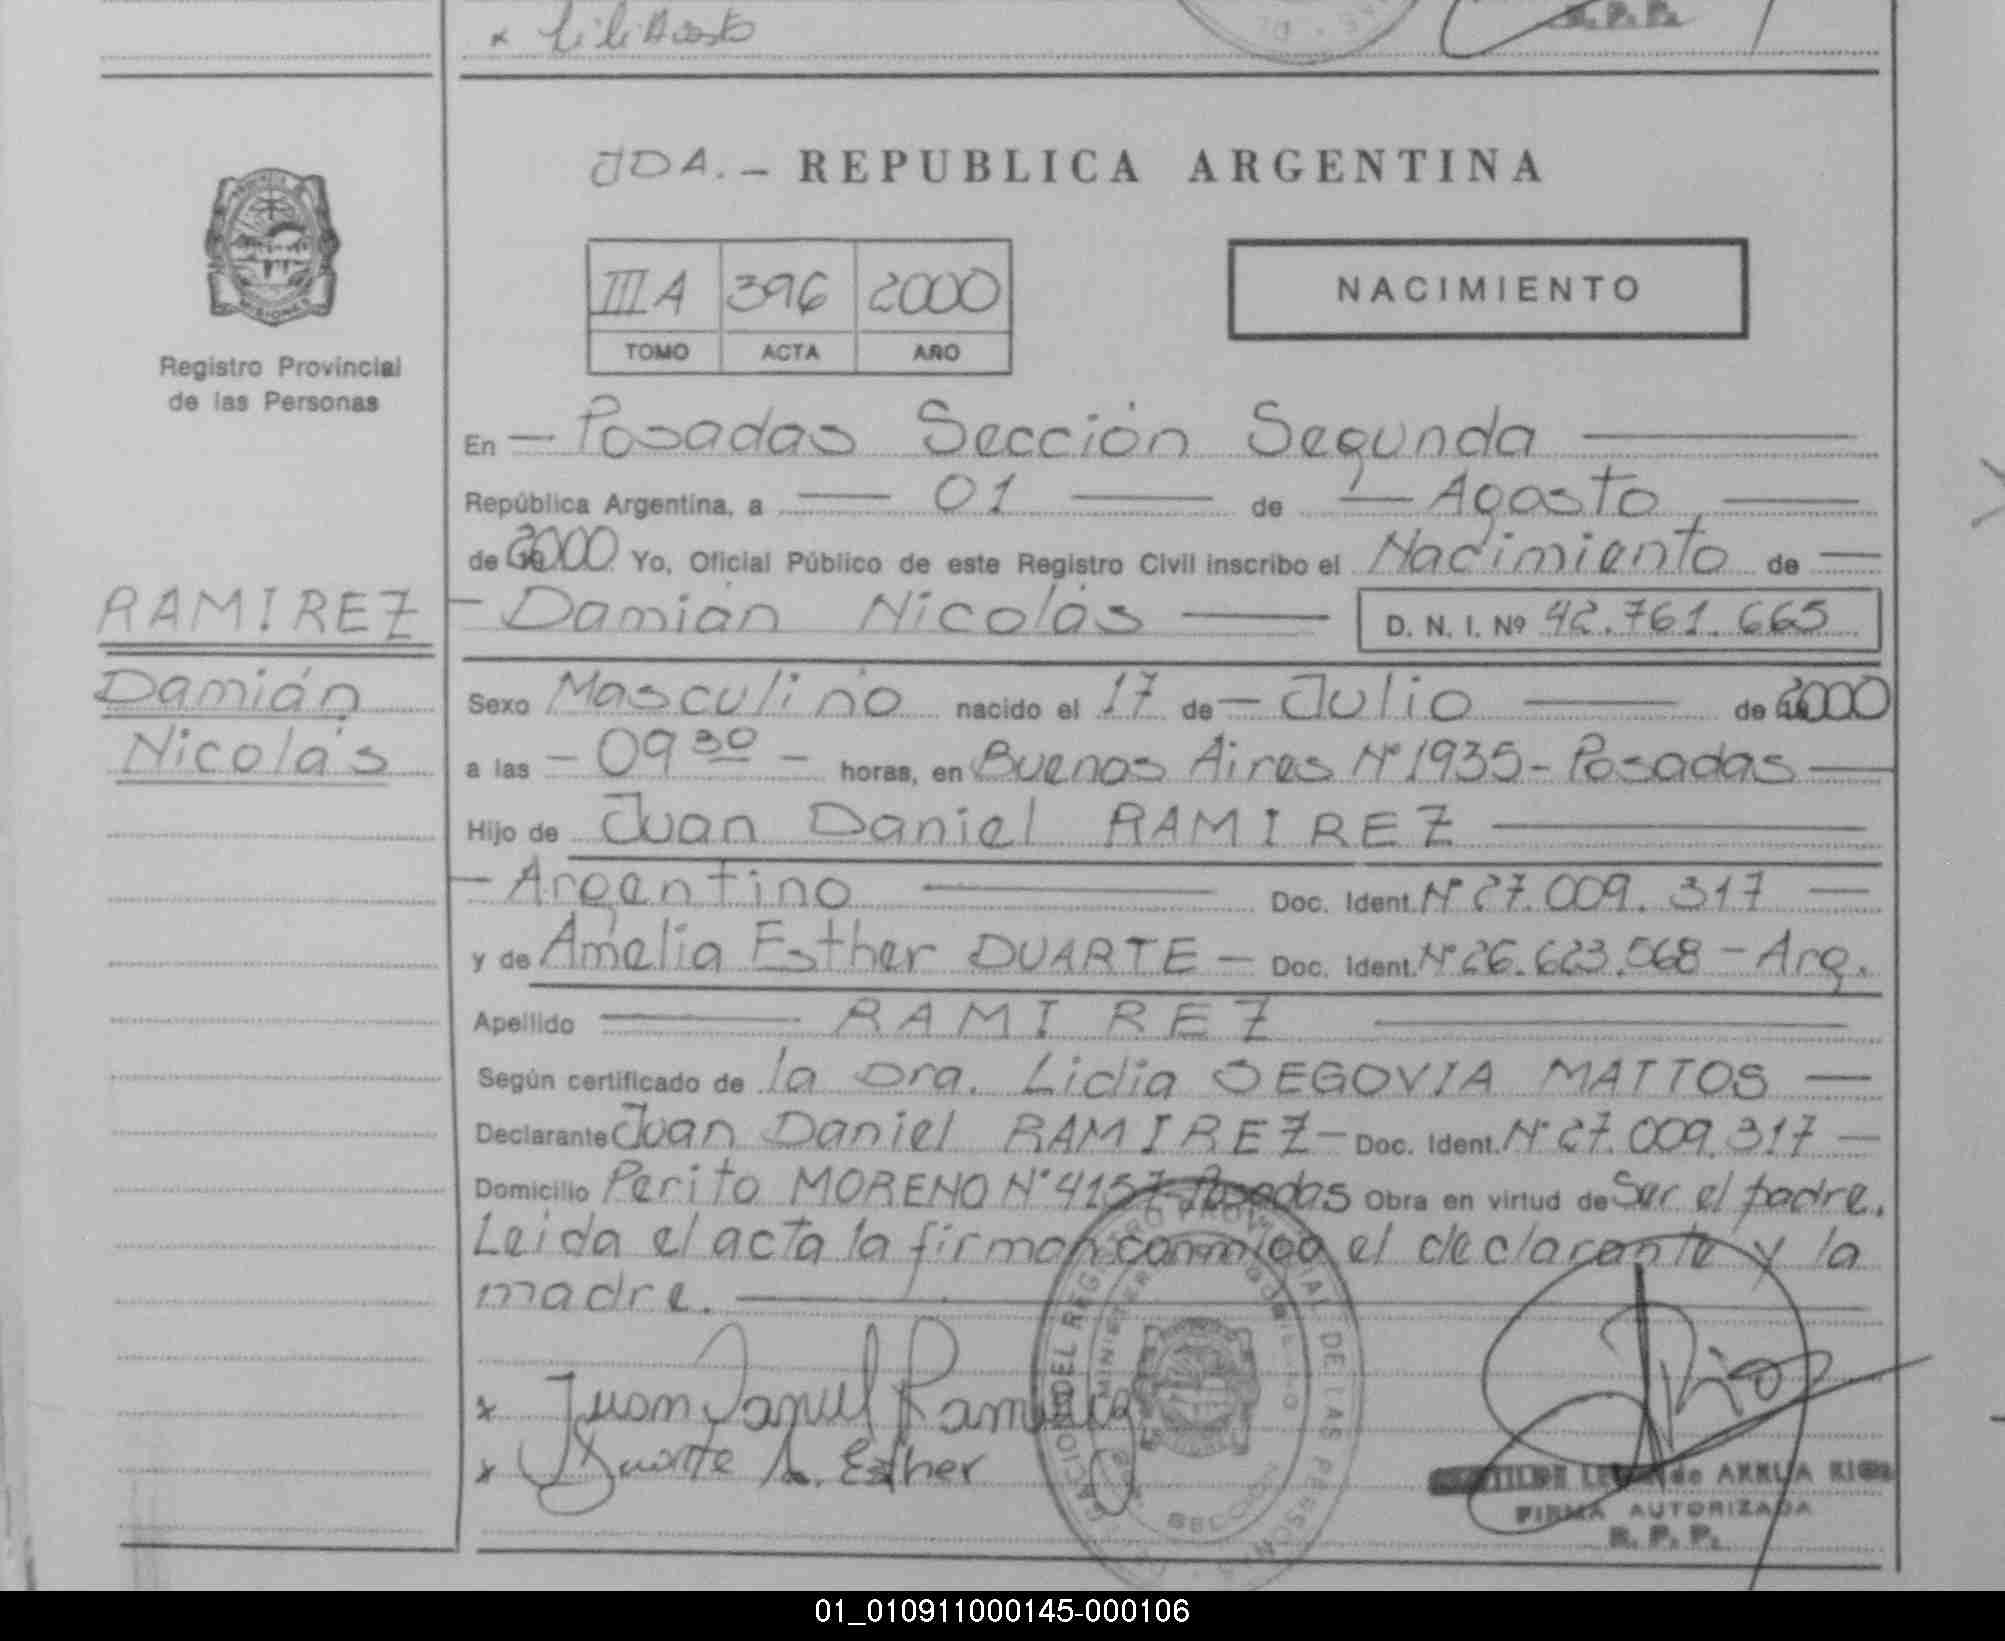 x Lili Acosta
R. P. P.
JDA. - REPUBLICA ARGENTINA
III A 396 2000
TOMO ACTA AÑO
NACIMIENTO
Registro Provincial
de las Personas
En — Posadas Sección Segunda —
República Argentina, a — 01 — de — Agosto —
de 2000 Yo, Oficial Público de este Registro Civil inscribo el Nacimiento de —
RAMIREZ
Damián
Nicolás
— Damián Nicolás — D. N. I. Nº 42.761.665
Sexo Masculino nacido el 17 de — Julio — de 2000
a las — 09 30 — horas, en Buenos Aires Nº 1935 - Posadas —
Hijo de Juan Daniel RAMIREZ —
— Argentino — Doc. Ident. Nº 27.009.317 —
y de Amelia Esther DUARTE — Doc. Ident. Nº 26.623.568 - Arg.
Apellido — RAMIREZ —
Según certificado de la Dra. Lidia SEGOVIA MATTOS —
Declarante Juan Daniel RAMIREZ — Doc. Ident. Nº 27.009.317 —
Domicilio Perito MORENO Nº 4157 - Posadas Obra en virtud de Ser el padre.
Leida el acta la firman conmigo el declarante y la
madre. —
x Juan Daniel Ramirez
x Duarte A. Esther
DEL REGISTRO PROVINCIAL DE LAS PERSONAS
MINISTERIO DE GOBIERNO
SECCION
de ARRUA RIOS
FIRMA AUTORIZADA
R. P. P.
01_010911000145-000106